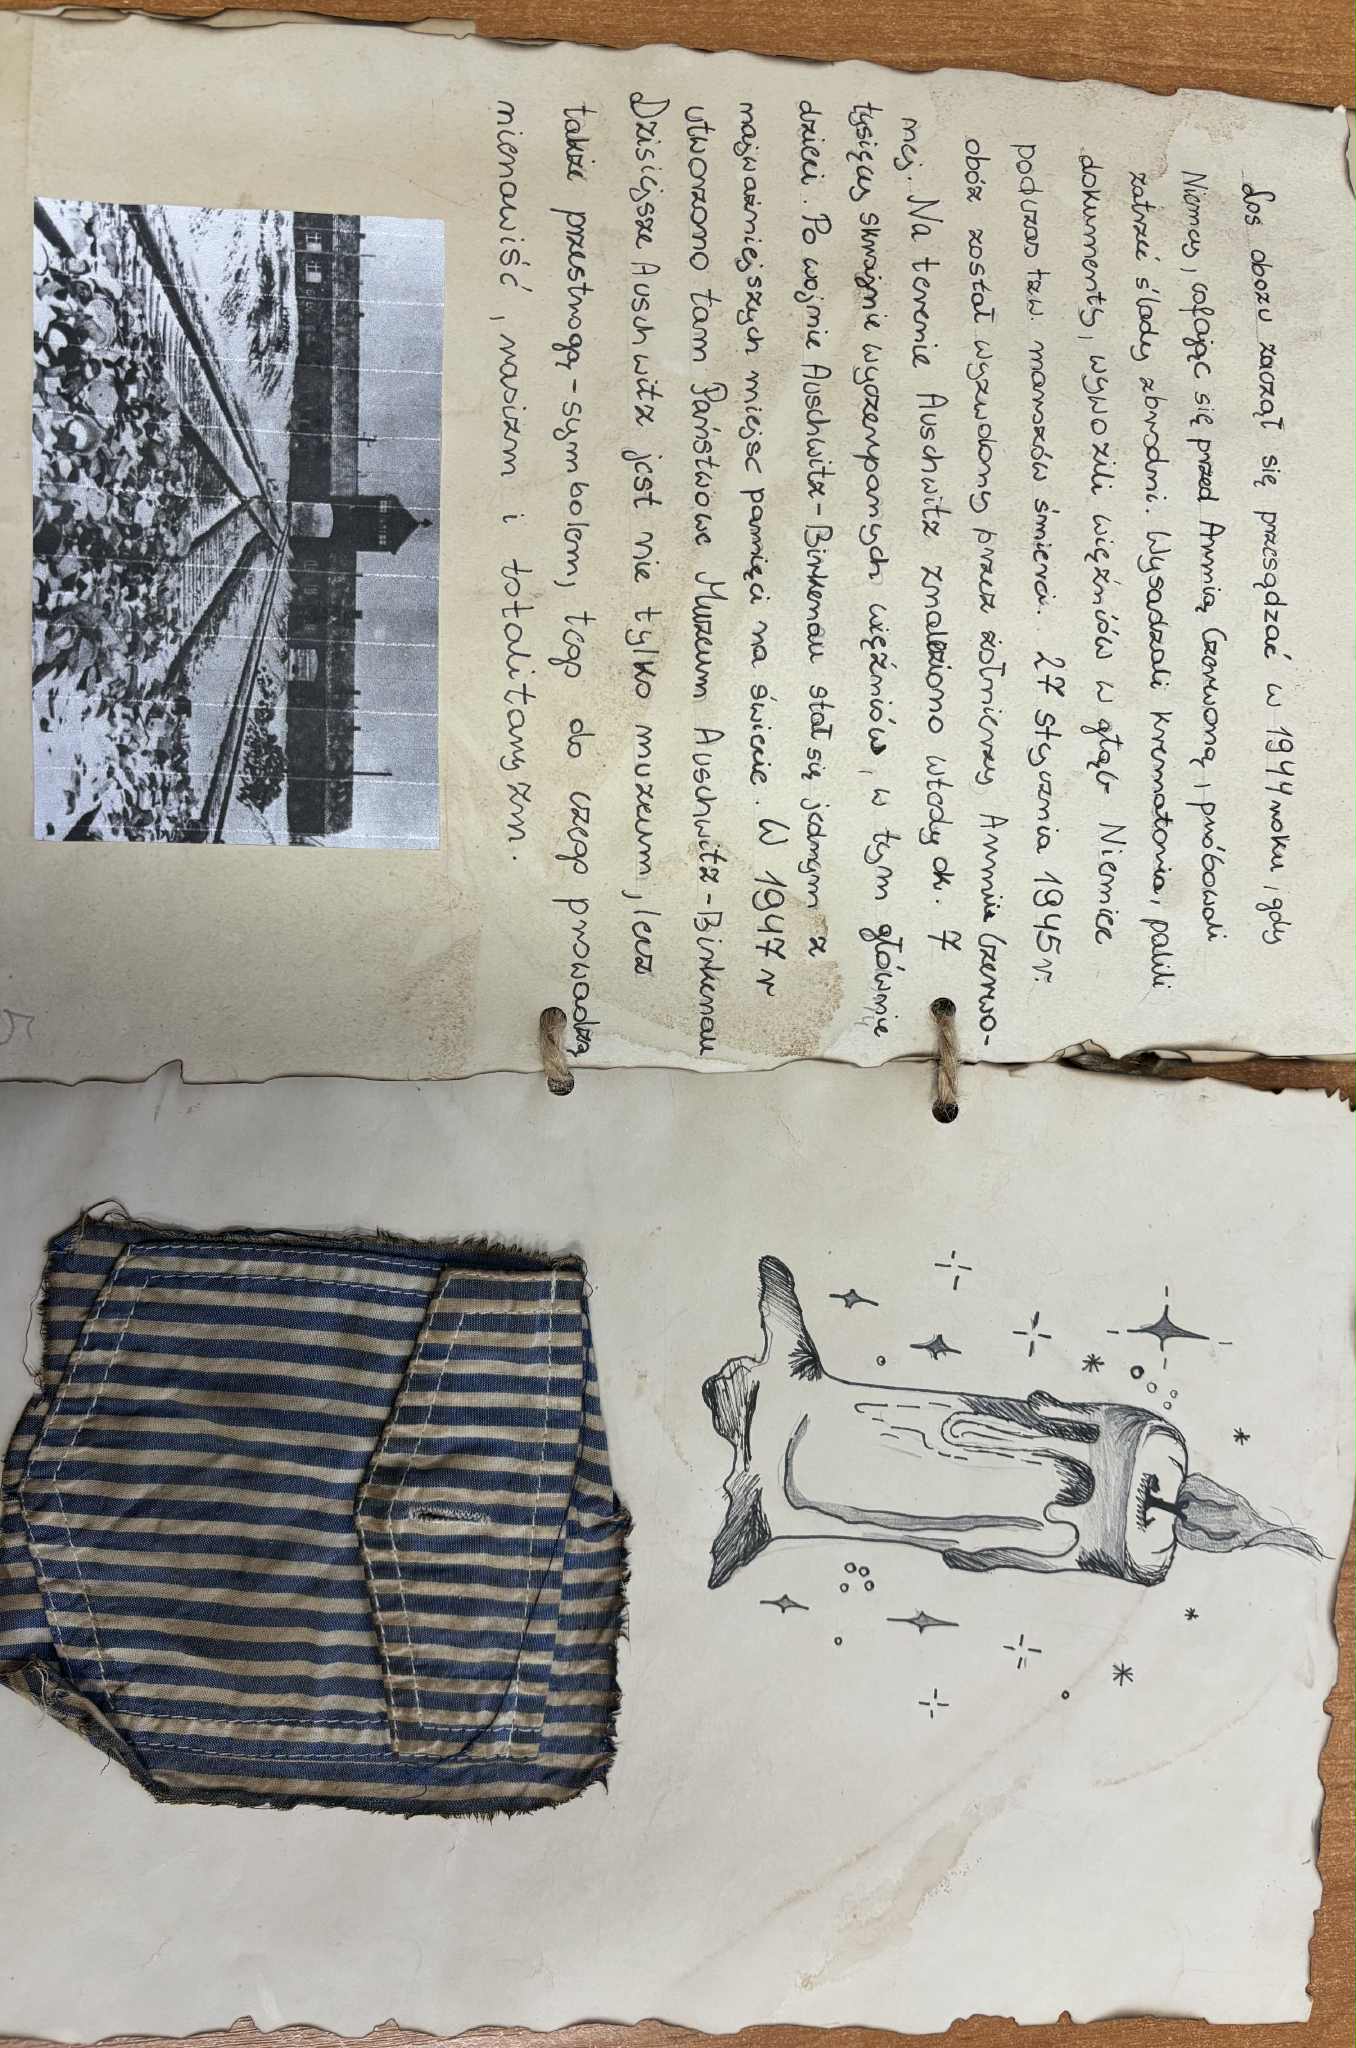 Los obozu zaczął się przesądzać w 1944 roku, gdy
Niemcy, cofając się przed Armią Czerwoną, próbowali
zatrzeć ślady zbrodni. Wysadzali krematoria, palili
dokumenty, wywozili więźniów w głąb Niemiec
podczas tzw. marszów śmierci. 27 stycznia 1945r.
obóz został wyzwolony przez żołnierzy Armii Czerwo-
nej. Na terenie Auschwitz znaleziono wtedy ok. 7
tysięcy skrajnie wyczerpanych więźniów, w tym głównie
dzieci. Po wojnie Auschwitz-Birkenau stał się jednym z
najważniejszych miejsc pamięci na świecie. W 1947 r
utworzono tam Państwowe Muzeum Auschwitz-Birkenau
Dzisiejsze Auschwitz jest nie tylko muzeum, lecz
także przestrogą - symbolem, tego do czego prowadzą
nienawiść, rasizm i totalitaryzm.
5